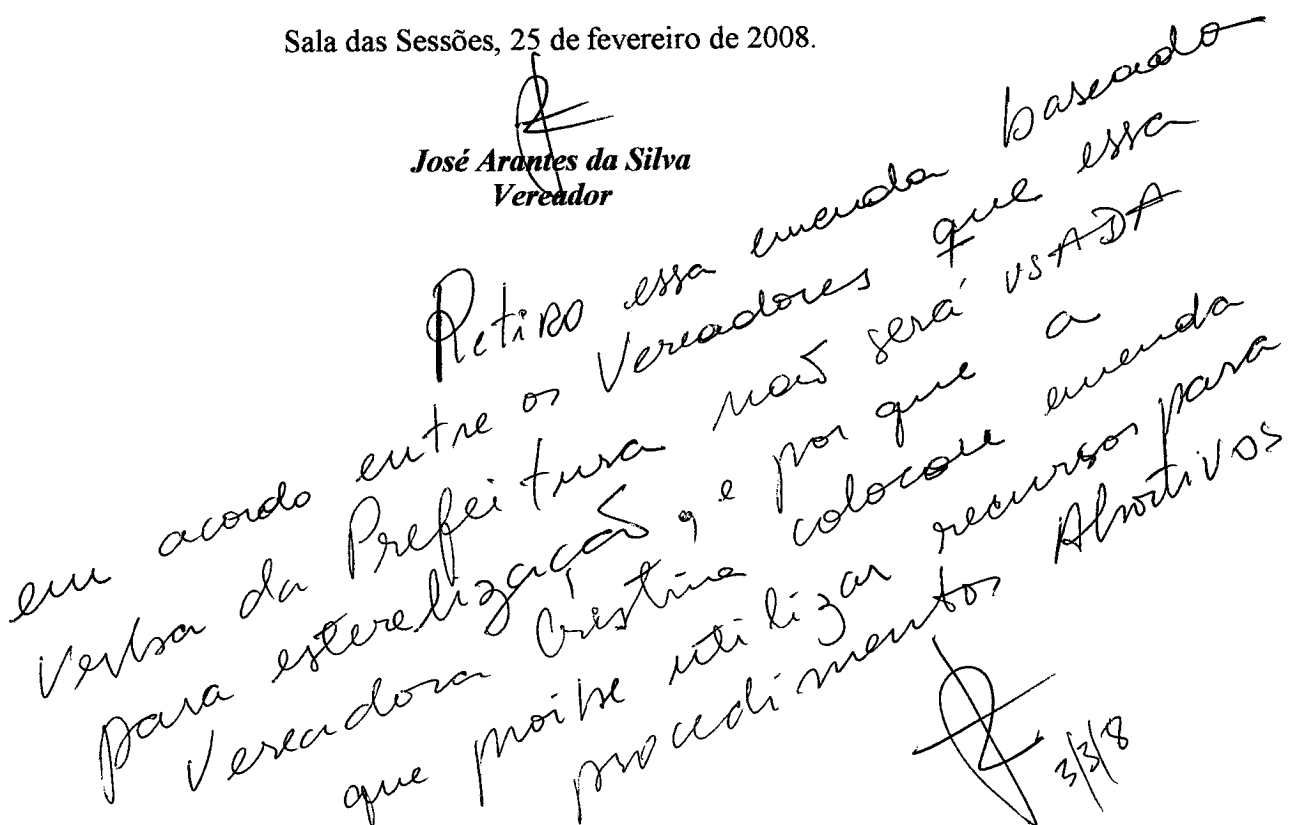 Sala das Sessões, 25 de fevereiro de 2008.
José Arantes da Silva
Vereador
Retiro essa emenda baseado
em acordo entre os Vereadores que essa
verba da Prefeitura não será usADA
para esterelização, e por que a
Vereadora Cristina colocou emenda
que proibe utilizar recursos para
procedimentos Abortivos
3/3/8